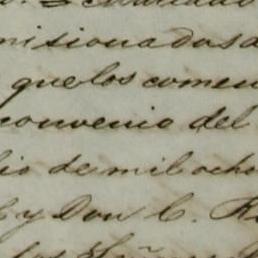 misionados a
que los comen
convenio del
lio de mil ocho
C. y Don C. R